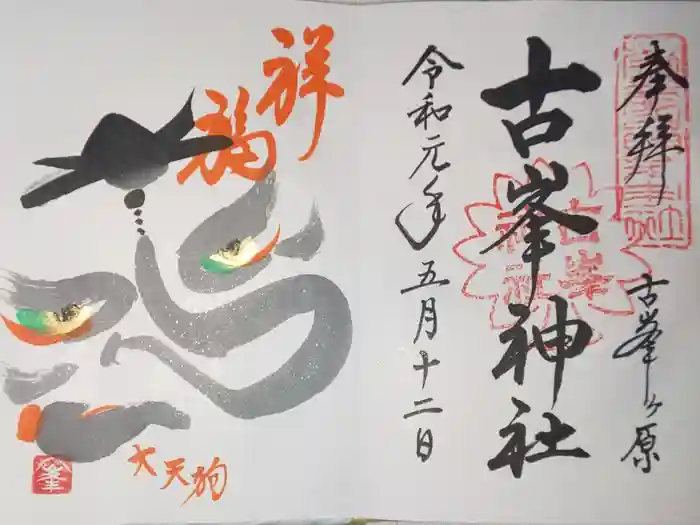 奉拝
古峯ヶ原
古峯神社
令和元年五月十二日
祥
福
大天狗
峯